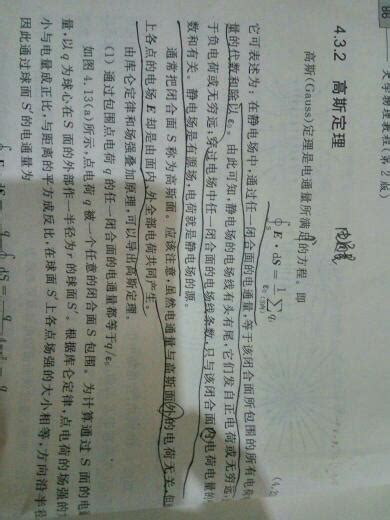 86 大学物理教程(第2版)
4.3.2 高斯定理
高斯(Gauss)定理是电通量所满足的方程。即
∮E·dS=1/ε₀∑q
它可表述为：在静电场中，通过任一闭合面的电通量，等于该闭合面所包围的所有电荷
量的代数和除以ε₀。由此可知，静电场的电场线有头有尾，它们发自正电荷或无穷远，
于负电荷或无穷远，穿过电场中任一闭合面的电场线条数，只与该闭合面内电荷电量的
数和有关。静电场是有源场，电荷就是静电场的源。
通常把闭合面S称为高斯面。应该注意，虽然电通量与高斯面外的电荷无关，但
上各点的电场E却是由面内、外全部电荷共同产生。
由库仑定律和场强叠加原理，可以导出高斯定理。
(1) 通过包围点电荷q的任一闭合面的电通量都等于q/ε₀
如图4.13(a)所示，点电荷q被一个任意的闭合面S包围。为计算通过S面的电
量，以q为球心在S面的外部作一半径为r的球面S′。根据库仑定律，点电荷的场强的
小与电量成正比，与距离的平方成反比，在球面S′上各点场强的大小相等，方向沿半径
因此通过球面S′的电通量为